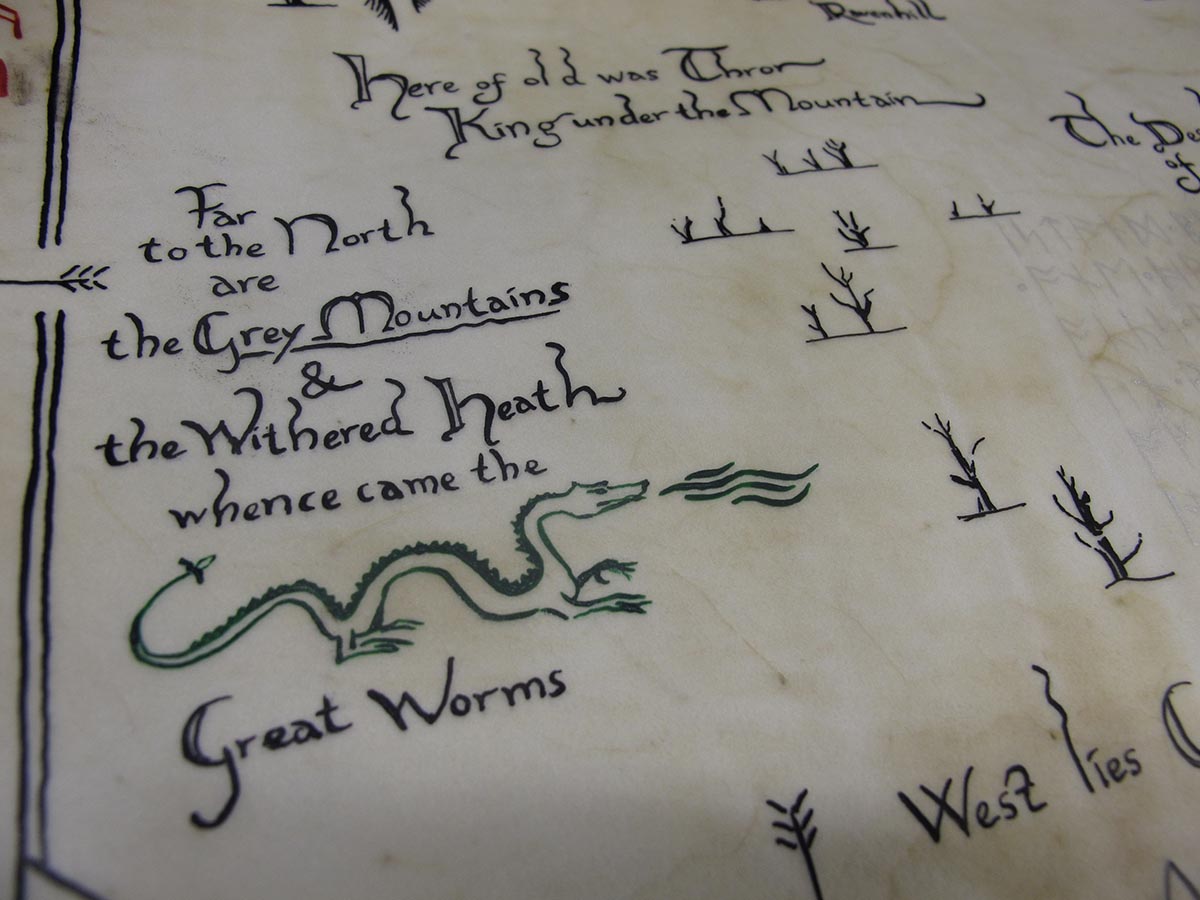 Ravenhill
Here of old was Thror
King under the Mountain
The
of
Far
to the North
are
the Grey Mountains
&
the Withered Heath
whence came the
Great Worms
West lies